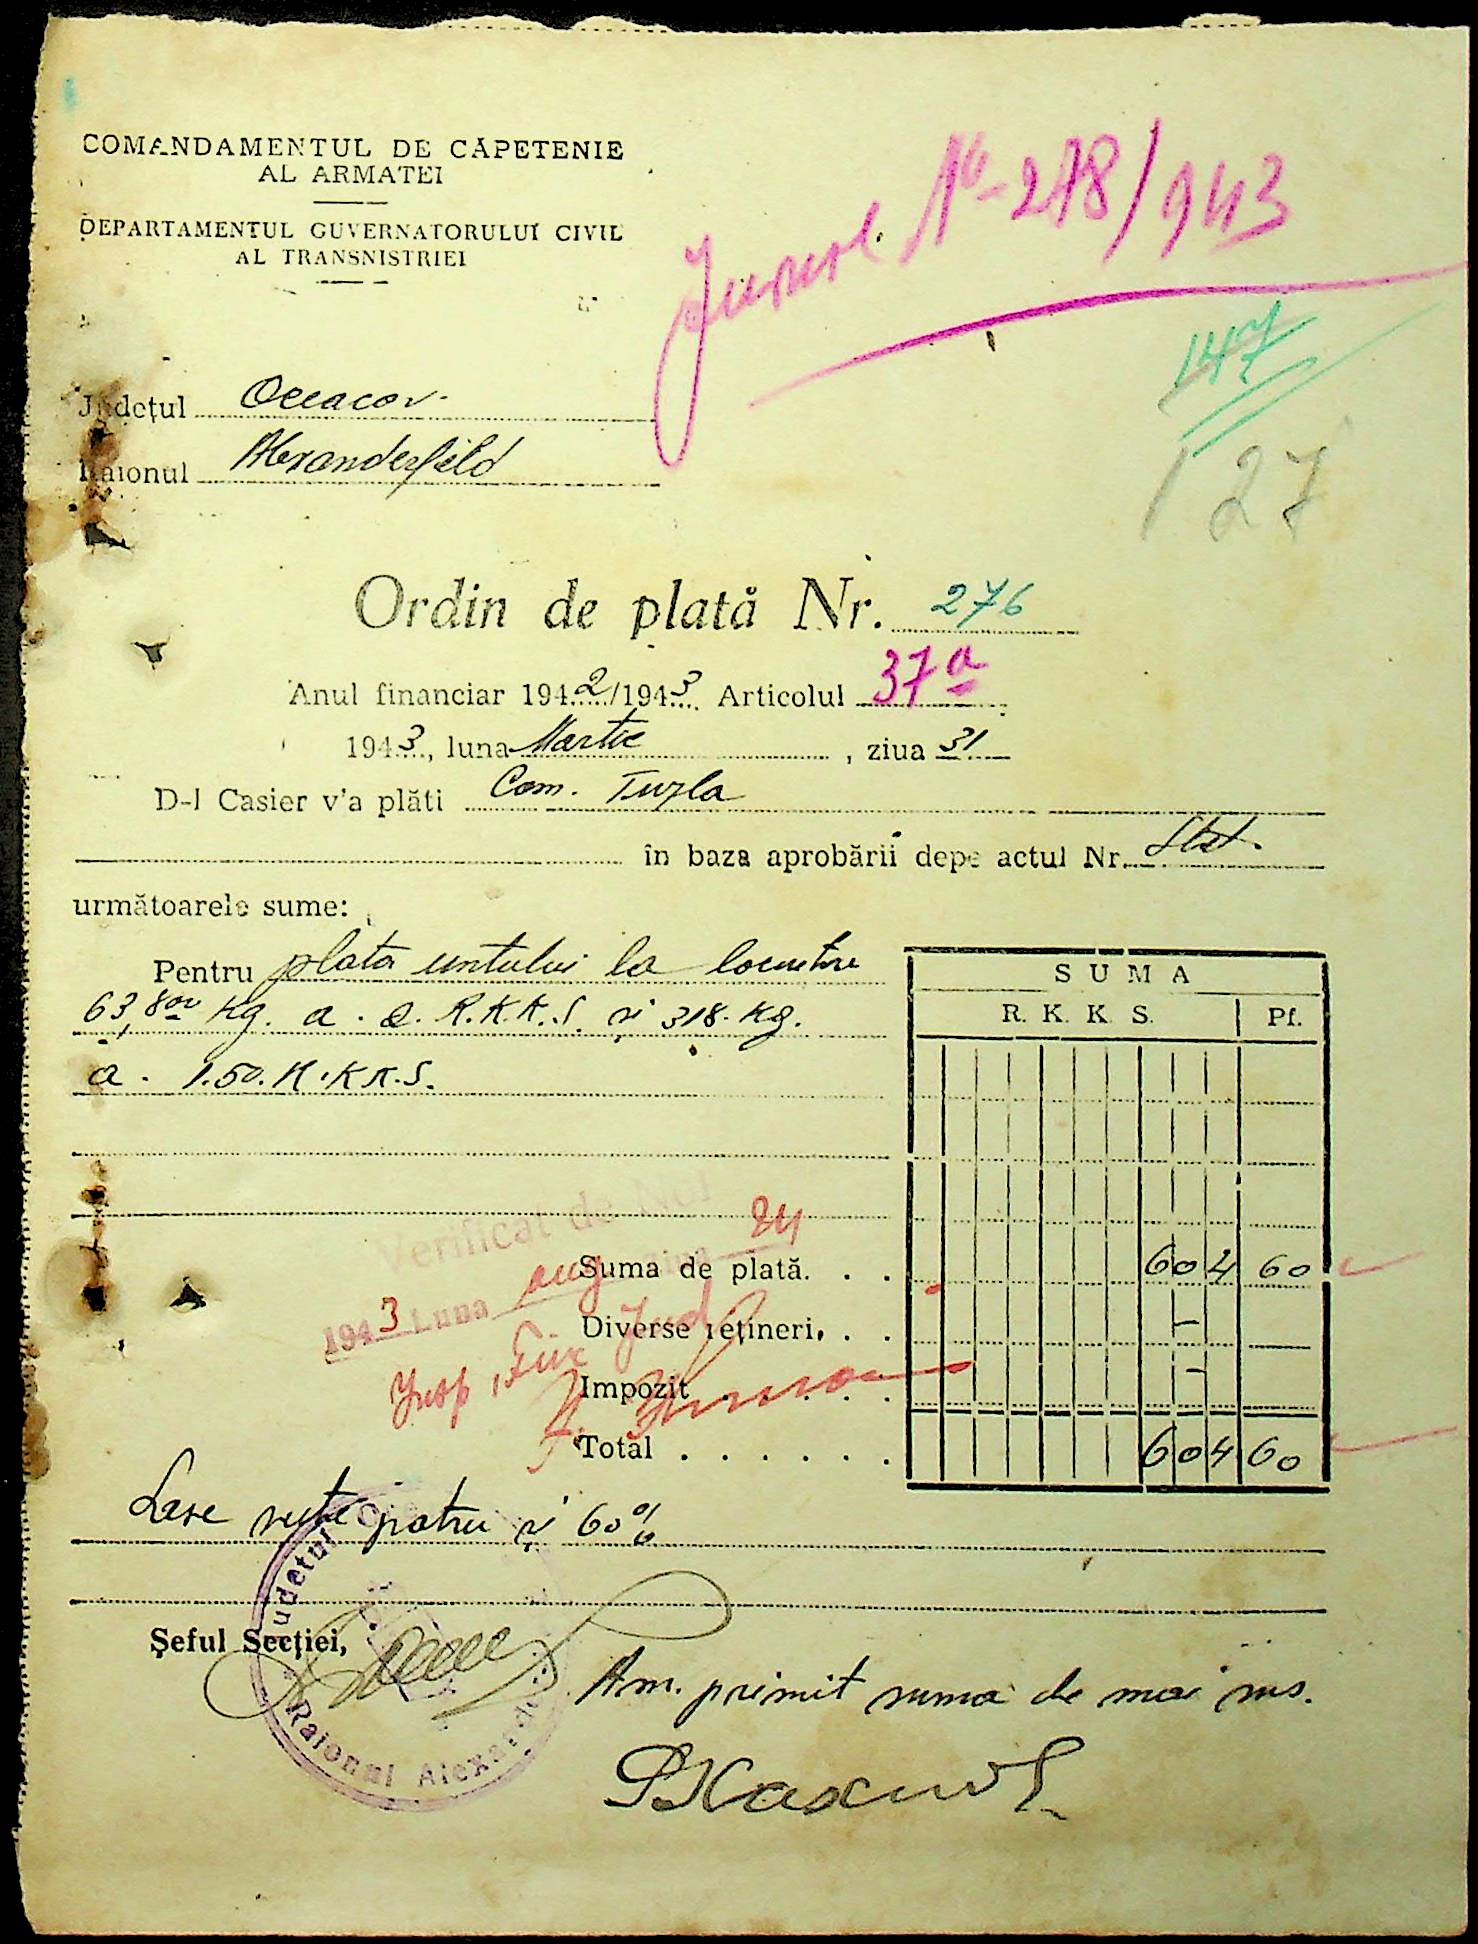 COMANDAMENTUL DE CĂPETENIE
AL ARMATEI
DEPARTAMENTUL GUVERNATORULUI CIVIL
AL TRANSNISTRIEI
Jurnal No 278/943
147
127
Județul Oceacov
Raionul Alexanderfeld
Ordin de plată Nr. 276
Anul financiar 1942/1943 Articolul 37a
1943, luna Martie, ziua 31
D-l Casier v'a plăti Com. Tuzla
în baza aprobării depe actul Nr. Stat.
următoarele sume:
Pentru plata untului la locuitori
63,800 Kg. a. 2. R.K.K.S. și 318. Kg.
a. 1.50. R.K.K.S.
SUMA
R. K. K. S. Pf.
Verificat de Noi
ziua 24
1943 Luna aug
Insp. Fin Jud
Suma de plată. . . 604 60
Diverse rețineri. . . -
Impozit . . . . . . -
Total . . . . . . . 604 60
Șase sute patru și 60%
Șeful Secției,
Județul
Raionul Alexander
Am. primit suma de mai sus.